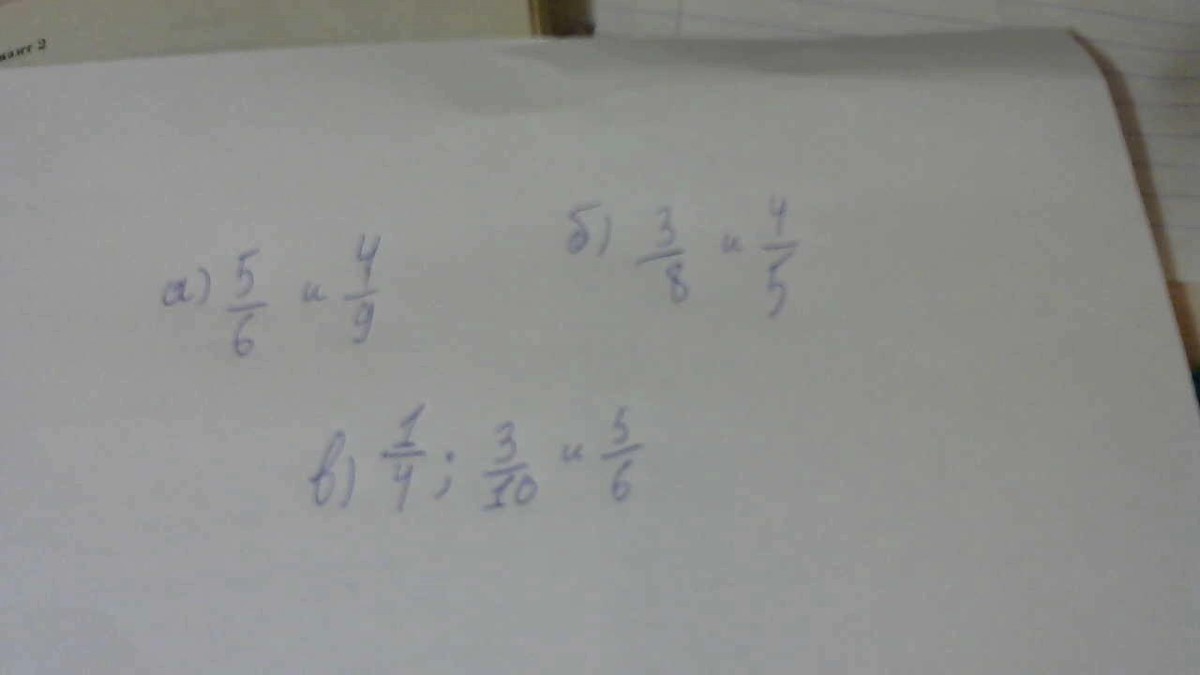 а) 5/6 и 4/9
б) 3/8 и 4/5
в) 1/4; 3/10 и 5/6